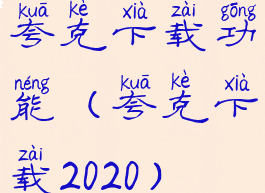 kuā kè xià zài gōng
夸克下载功
néng kuā kè xià
能（夸克下
zài
载2020）